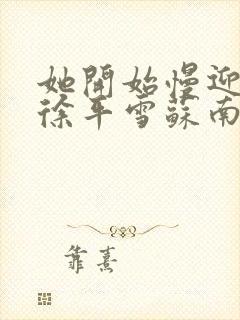 她開始慢迎
徐年雪蘇南
靠熹